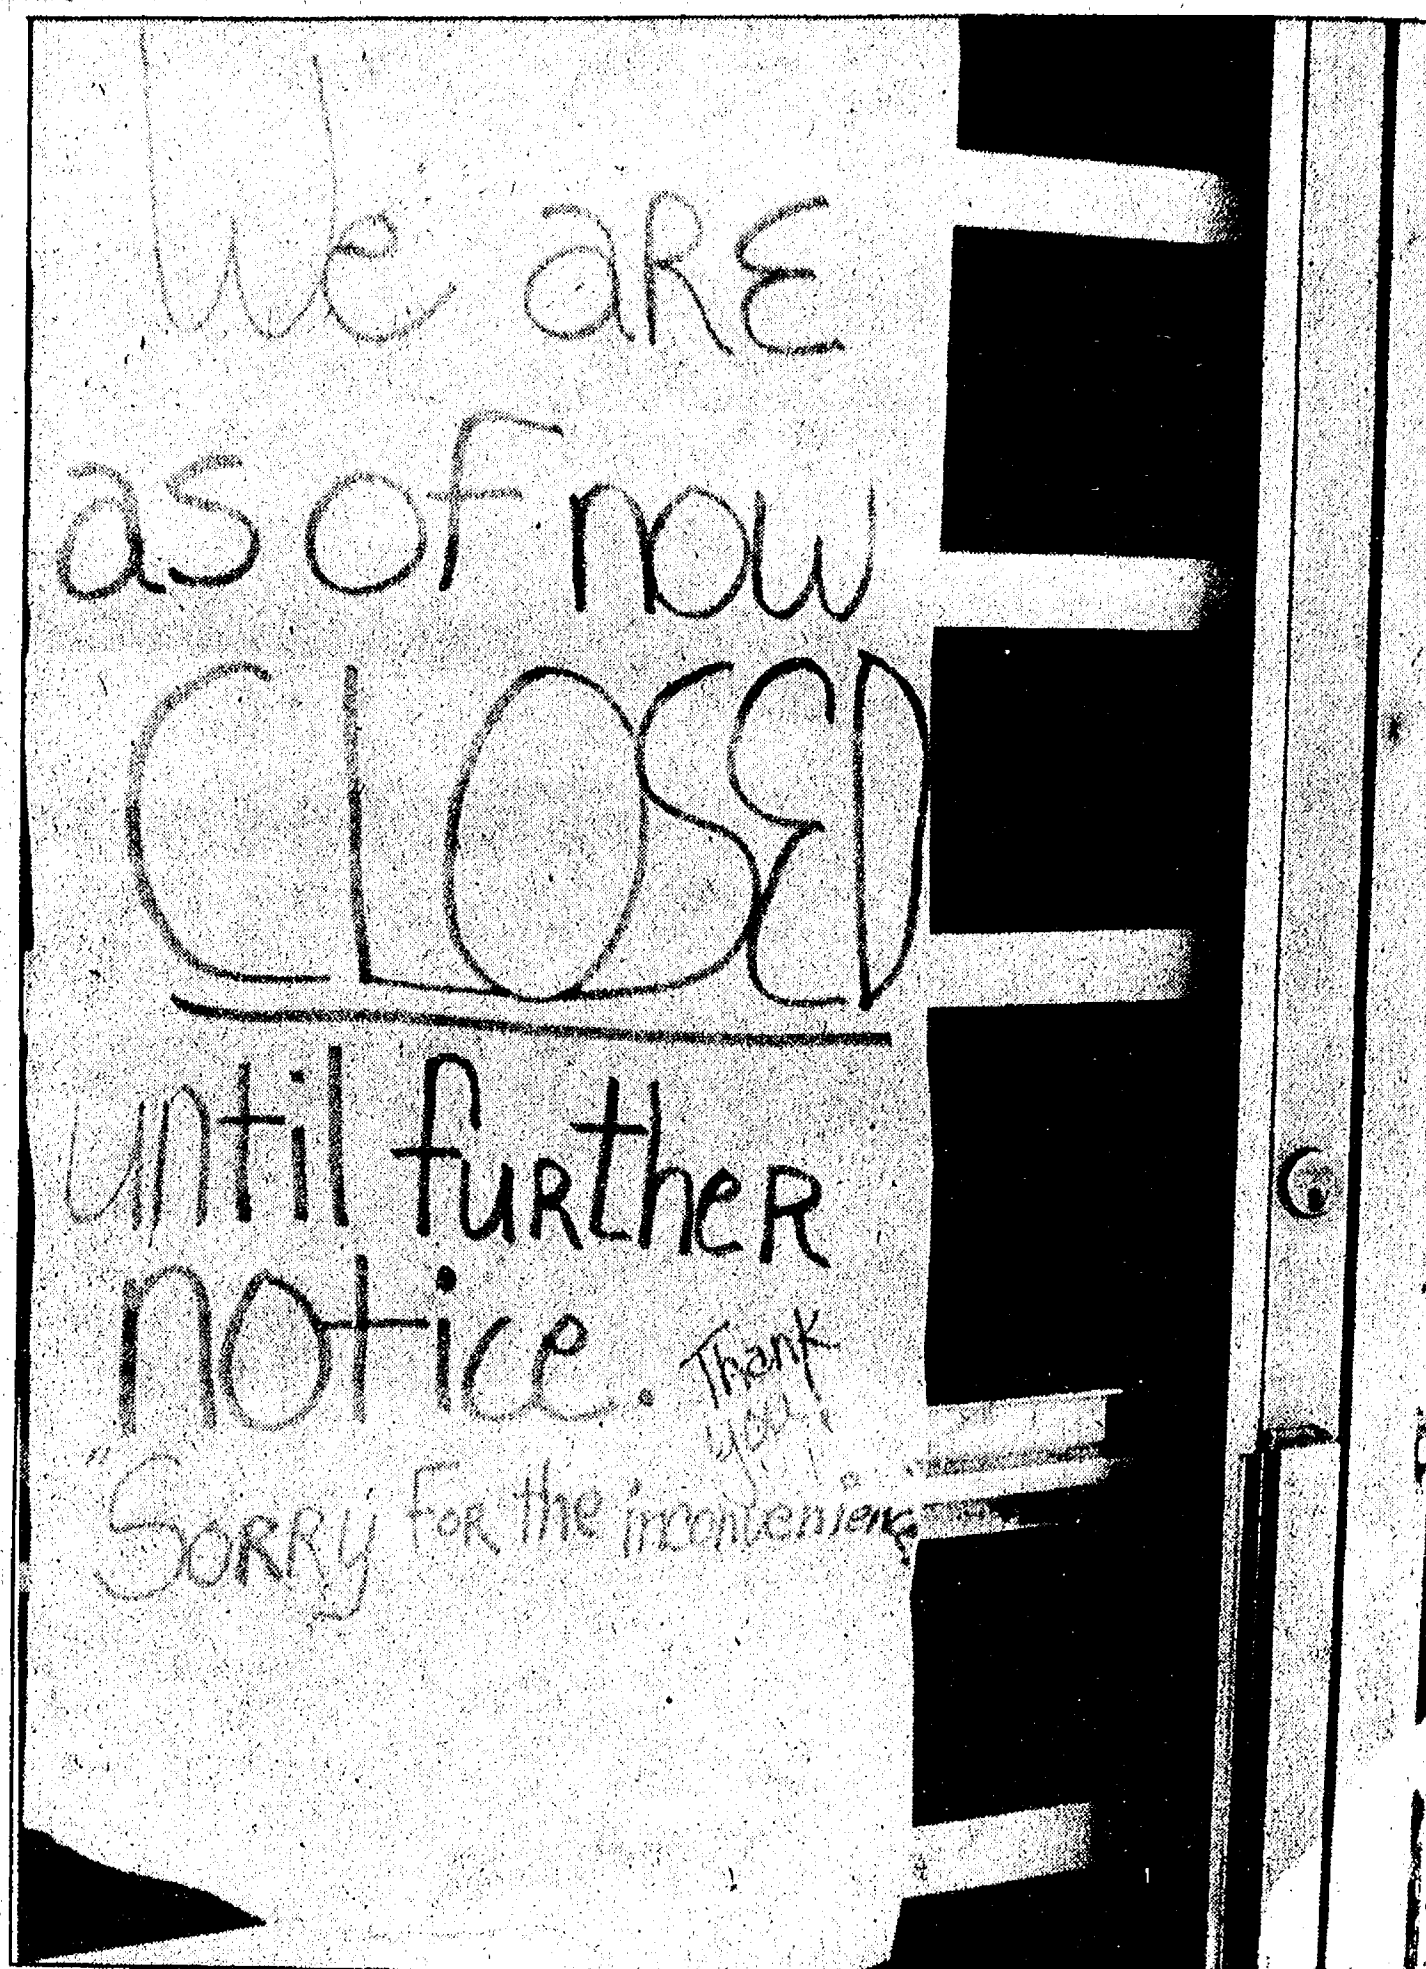 We aRE
as of now
CLOSED
until furtheR
notice. Thank
you!
"SoRRy FoR the inconvenience